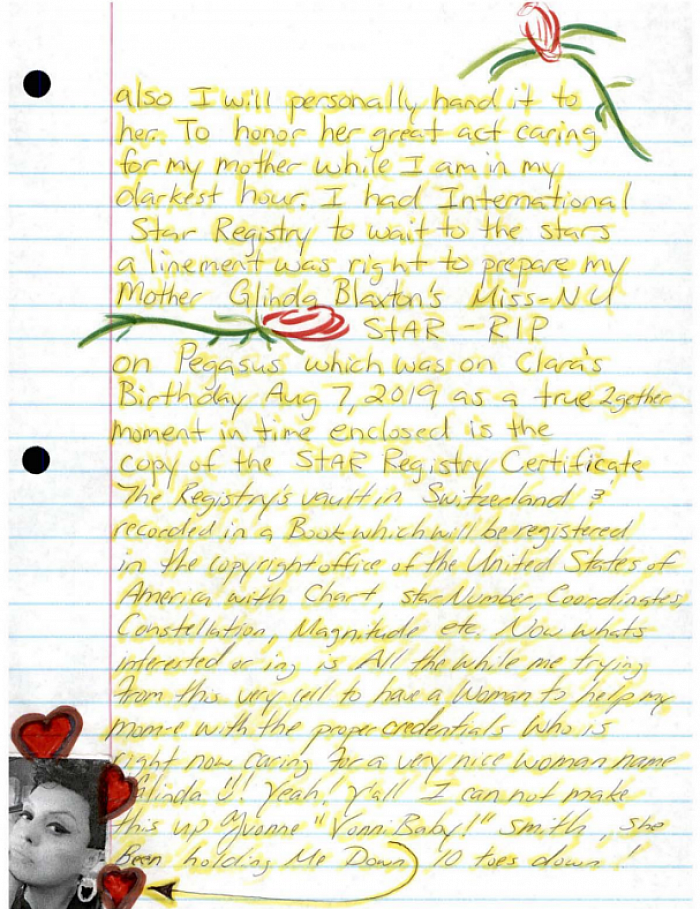 also I will personally hand it to
her. To honor her great act caring
for my mother while I am in my
darkest hour. I had International
Star Registry to wait to the stars
a linement was right to prepare my
Mother Glinda Blaxton's Miss-NU
StAR - RIP
on Pegasus which was on Clara's
Birthday Aug 7, 2019 as a true 2gether
moment in time enclosed is the
copy of the StAR Registry Certificate
The Registry's vault in Switzerland &
recorded in a Book which will be registered
in the copyright office of the United States of
America with Chart, star Number, Coordinates,
Constellation, Magnitude etc. Now whats
interested or ing is All the while me trying
from this very cell to have a Woman to help my
mom-e with the proper credentials Who is
right now caring for a very nice woman name
Glinda ! Yeah! Y'all I can not make
this up Yvonne "Vonni Baby!" Smith, she
Been holding Me Down 10 toes down!